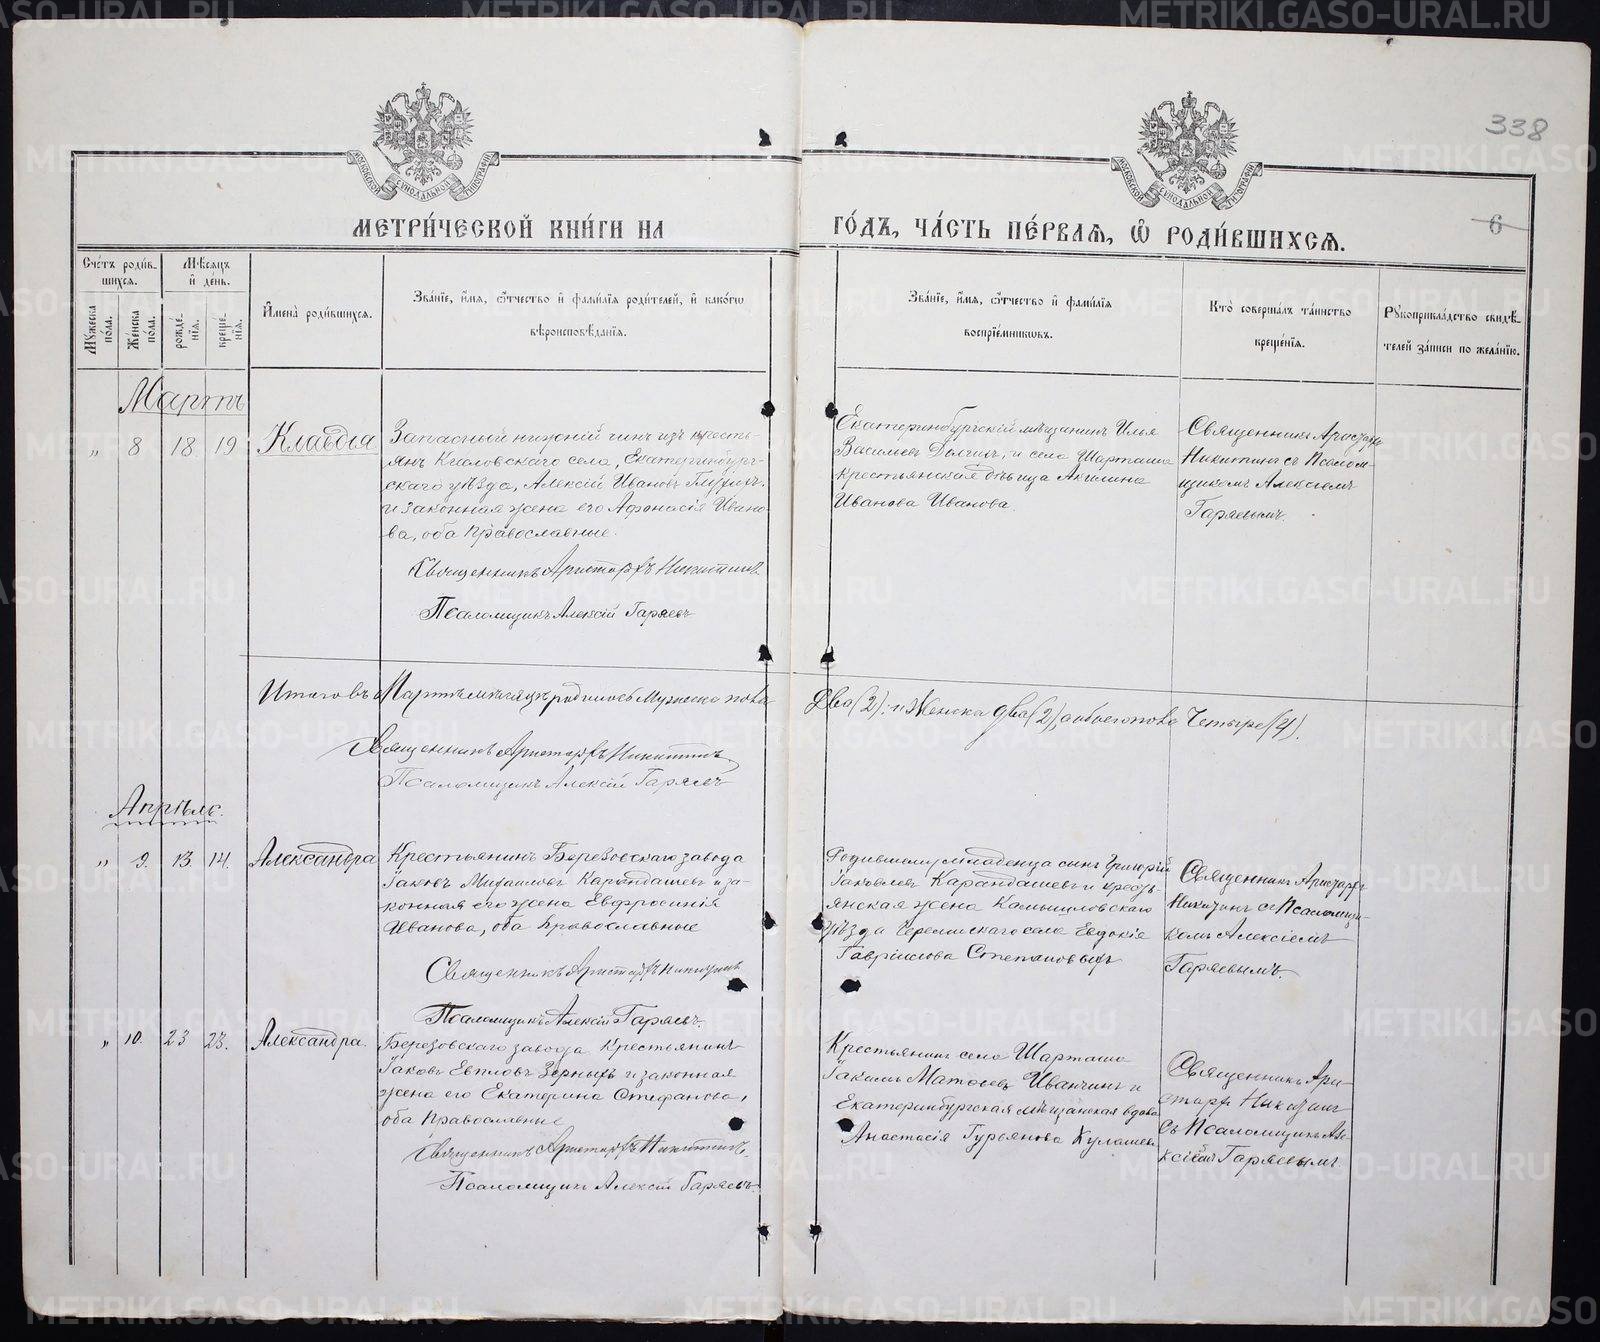 METRIKI.GASO-URAL.RU
338
МОСКОВСКОЙ СѴНОДАЛЬНОЙ ТИПОГРАФІИ
МОСКОВСКОЙ СѴНОДАЛЬНОЙ ТИПОГРАФІИ
МЕТРИ́ЧЕСКОЙ КНИ́ГИ НА
ГО́ДЪ, ЧА́СТЬ ПЕ́РВАЯ, Ѡ҆ РОДИ́ВШИХСЯ.
6
Сче́тъ роди́в-
шихся.
Мѣ́сяцъ
и҆ де́нь.
Мꙋ́жеска
по́ла.
Же́нска
по́ла.
рожде́-
нїя.
креще́-
нїя.
И҆мена̀ роди́вшихся.
Зва́нїе, и҆́мя, ѻ҆́тчество и҆ фамѝлїя роди́телей, и҆ како́гѡ
вѣроисповѣ́данїя.
Зва́нїе, и҆́мя, ѻ҆́тчество и҆ фами́лїя
воспрїе́мникѡвъ.
Кто̀ соверша́лъ та́инство
креще́нїя.
Рꙋкоприкла́дство свидѣ́-
телей за́писи по жела́нїю.
Мартъ
„ 8 18 19 Клавдіа
Запасный нижній чинъ изъ кресть-
янъ Кисловскаго села, Екатеринбург-
скаго уѣзда, Алексій Ивановъ
и законная жена его Афонасія Ивано-
ва, оба Православные.
Священникъ Аристархъ Никитинъ
Псаломщикъ Алексій Гаряевъ
Екатеринбургскій мѣщанинъ Илья
Васильевъ и села Шарташа
крестьянская дѣвица Акилина
Иванова Иванова.
Священникъ Аристархъ
Никитинъ съ Псалом-
щикомъ Алексіемъ
Гаряевымъ.
Итого въ Мартѣ мѣсяцѣ родилось Мужеска пола
Два (2), и Женска два (2), а обоего пола Четыре (4).
Священникъ Аристархъ Никитинъ
Псаломщикъ Алексій Гаряевъ
Апрѣль.
„ 9. 13. 14. Александра
Крестьянинъ Березовскаго завода
Іаковъ Михаиловъ Карандашевъ и за-
конная его жена Евфросинія
Иванова, оба Православные
Священникъ Аристархъ Никитинъ
Псаломщикъ Алексій Гаряевъ.
Родившемуся младенца сынъ Григорій
Іаковлевъ Карандашевъ и кресть-
янская жена Камышловскаго
уѣзда села Евдокія
Гавріилова Степановыхъ
Священникъ Аристархъ
Никитинъ съ Псаломщи-
комъ Алексіемъ
Гаряевымъ.
„ 10. 23 23. Александра.
Березовскаго завода Крестьянинъ
Іаковъ Евпловъ Зерныхъ и законная
жена его Екатерина Стефанова,
оба Православные
Священникъ Аристархъ Никитинъ.
Псаломщикъ Алексій Гаряевъ.
Крестьянинъ села Шарташа
Іакимъ Матѳеевъ Иванчинъ и
Екатеринбургская мѣщанская вдова
Анастасія Гурьянова
Священникъ Ари-
стархъ Никитинъ
съ Псаломщикъ Але-
ксіемъ Гаряевымъ.